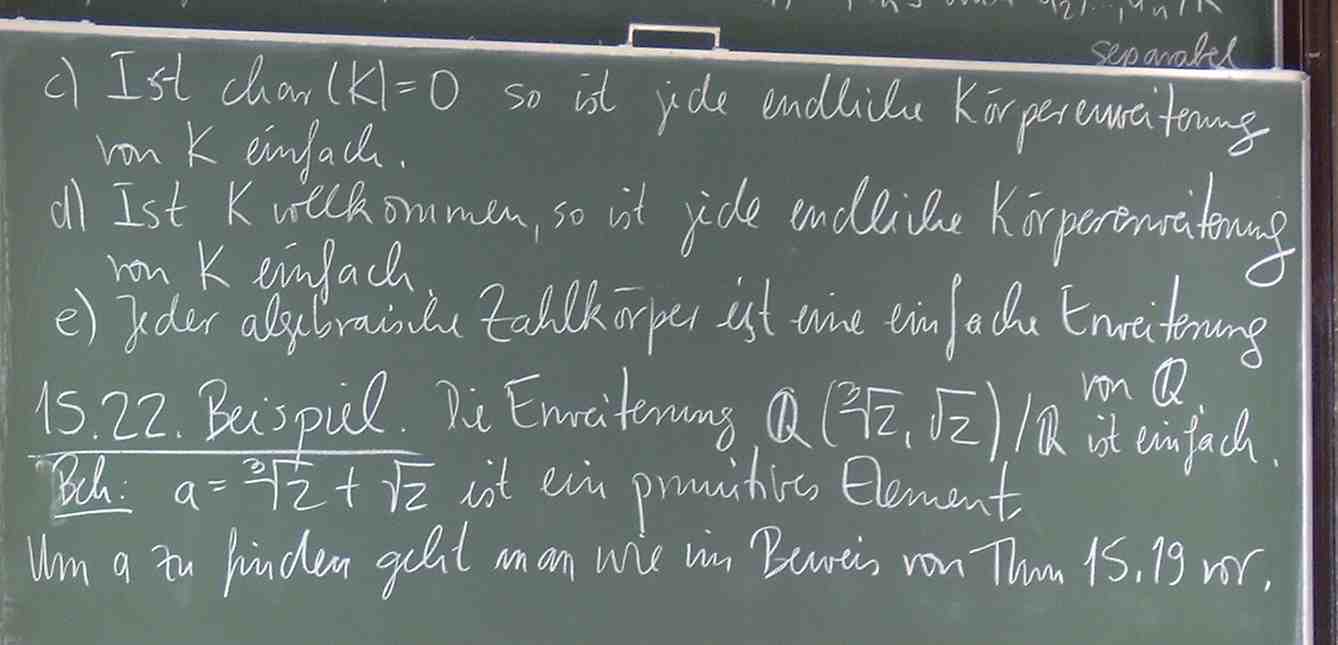 separabel
c) Ist char(K)=0 so ist jede endliche Körpererweiterung
von K einfach.
d) Ist K vollkommen, so ist jede endliche Körpererweiterung
von K einfach.
e) Jeder algebraische Zahlkörper ist eine einfache Erweiterung
von ℚ.
15.22. Beispiel. Die Erweiterung ℚ(∛2, √2)/ℚ ist einfach.
Beh: a = ∛2 + √2 ist ein primitives Element.
Um a zu finden geht man wie im Beweis von Thm 15.19 vor.